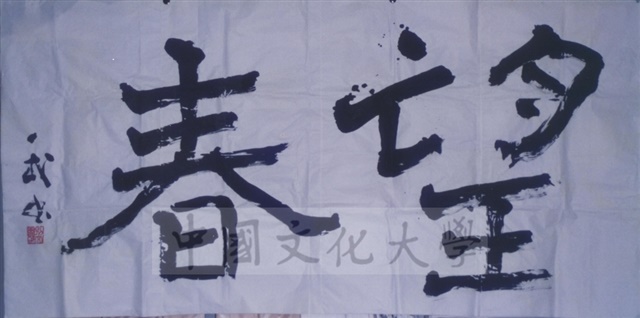 望春
中國文化大學